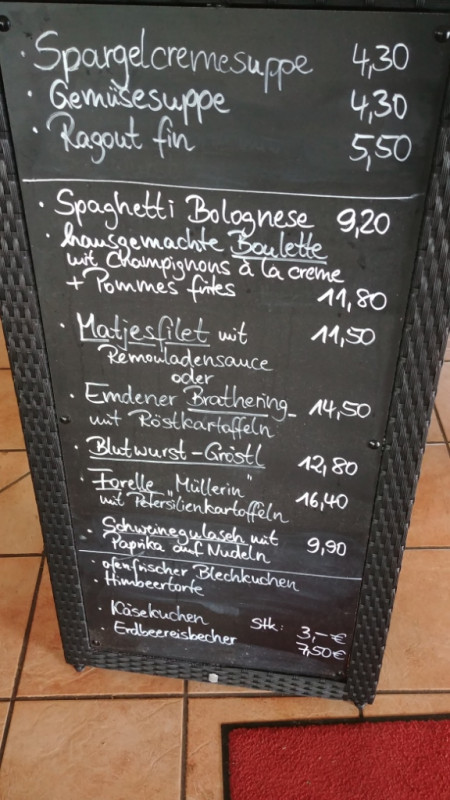 · Spargelcremesuppe 4,30
· Gemüsesuppe 4,30
· Ragout fin 5,50
· Spaghetti Bolognese 9,20
· hausgemachte Boulette
mit Champignons à la creme
+ Pommes frites 11,80
· Matjesfilet mit 11,50
Remouladensauce
oder
· Emdener Brathering 14,50
mit Röstkartoffeln
· Blutwurst-Gröstl 12,80
· Forelle "Müllerin" 16,40
mit Petersilienkartoffeln
· Schweinegulasch mit 9,90
Paprika auf Nudeln
· ofenfrischer Blechkuchen
· Himbeertorte
· Käsekuchen Stk: 3,-€
· Erdbeereisbecher 7,50€